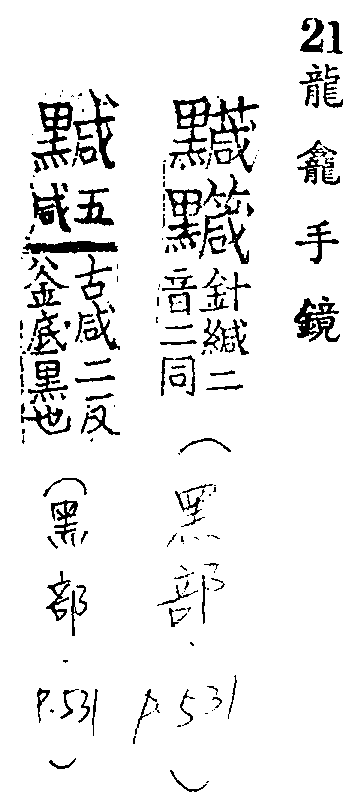 21龍龕手鏡
針緘二
音二同
（黑部．P.531）
黬
五
咸
古咸二反
釜底黑也
（黑部．P.531）